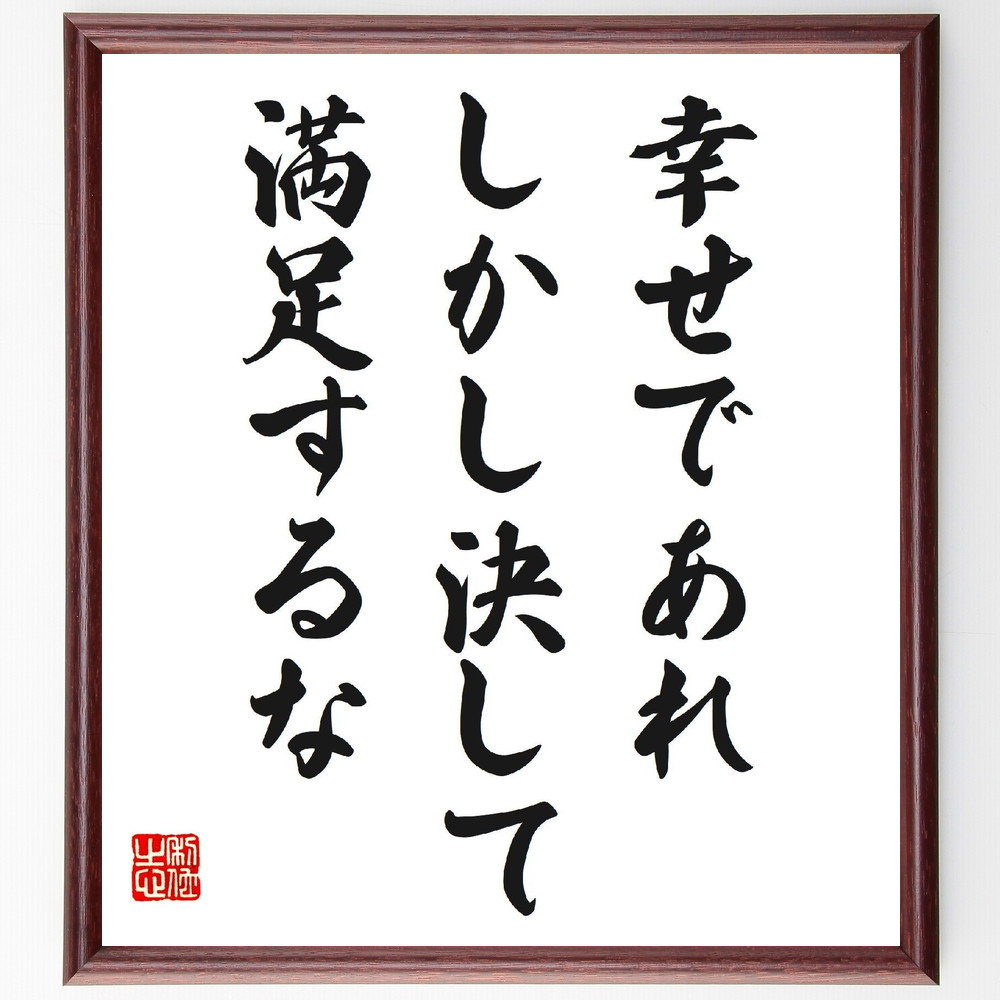 幸せであれ
しかし決して
満足するな